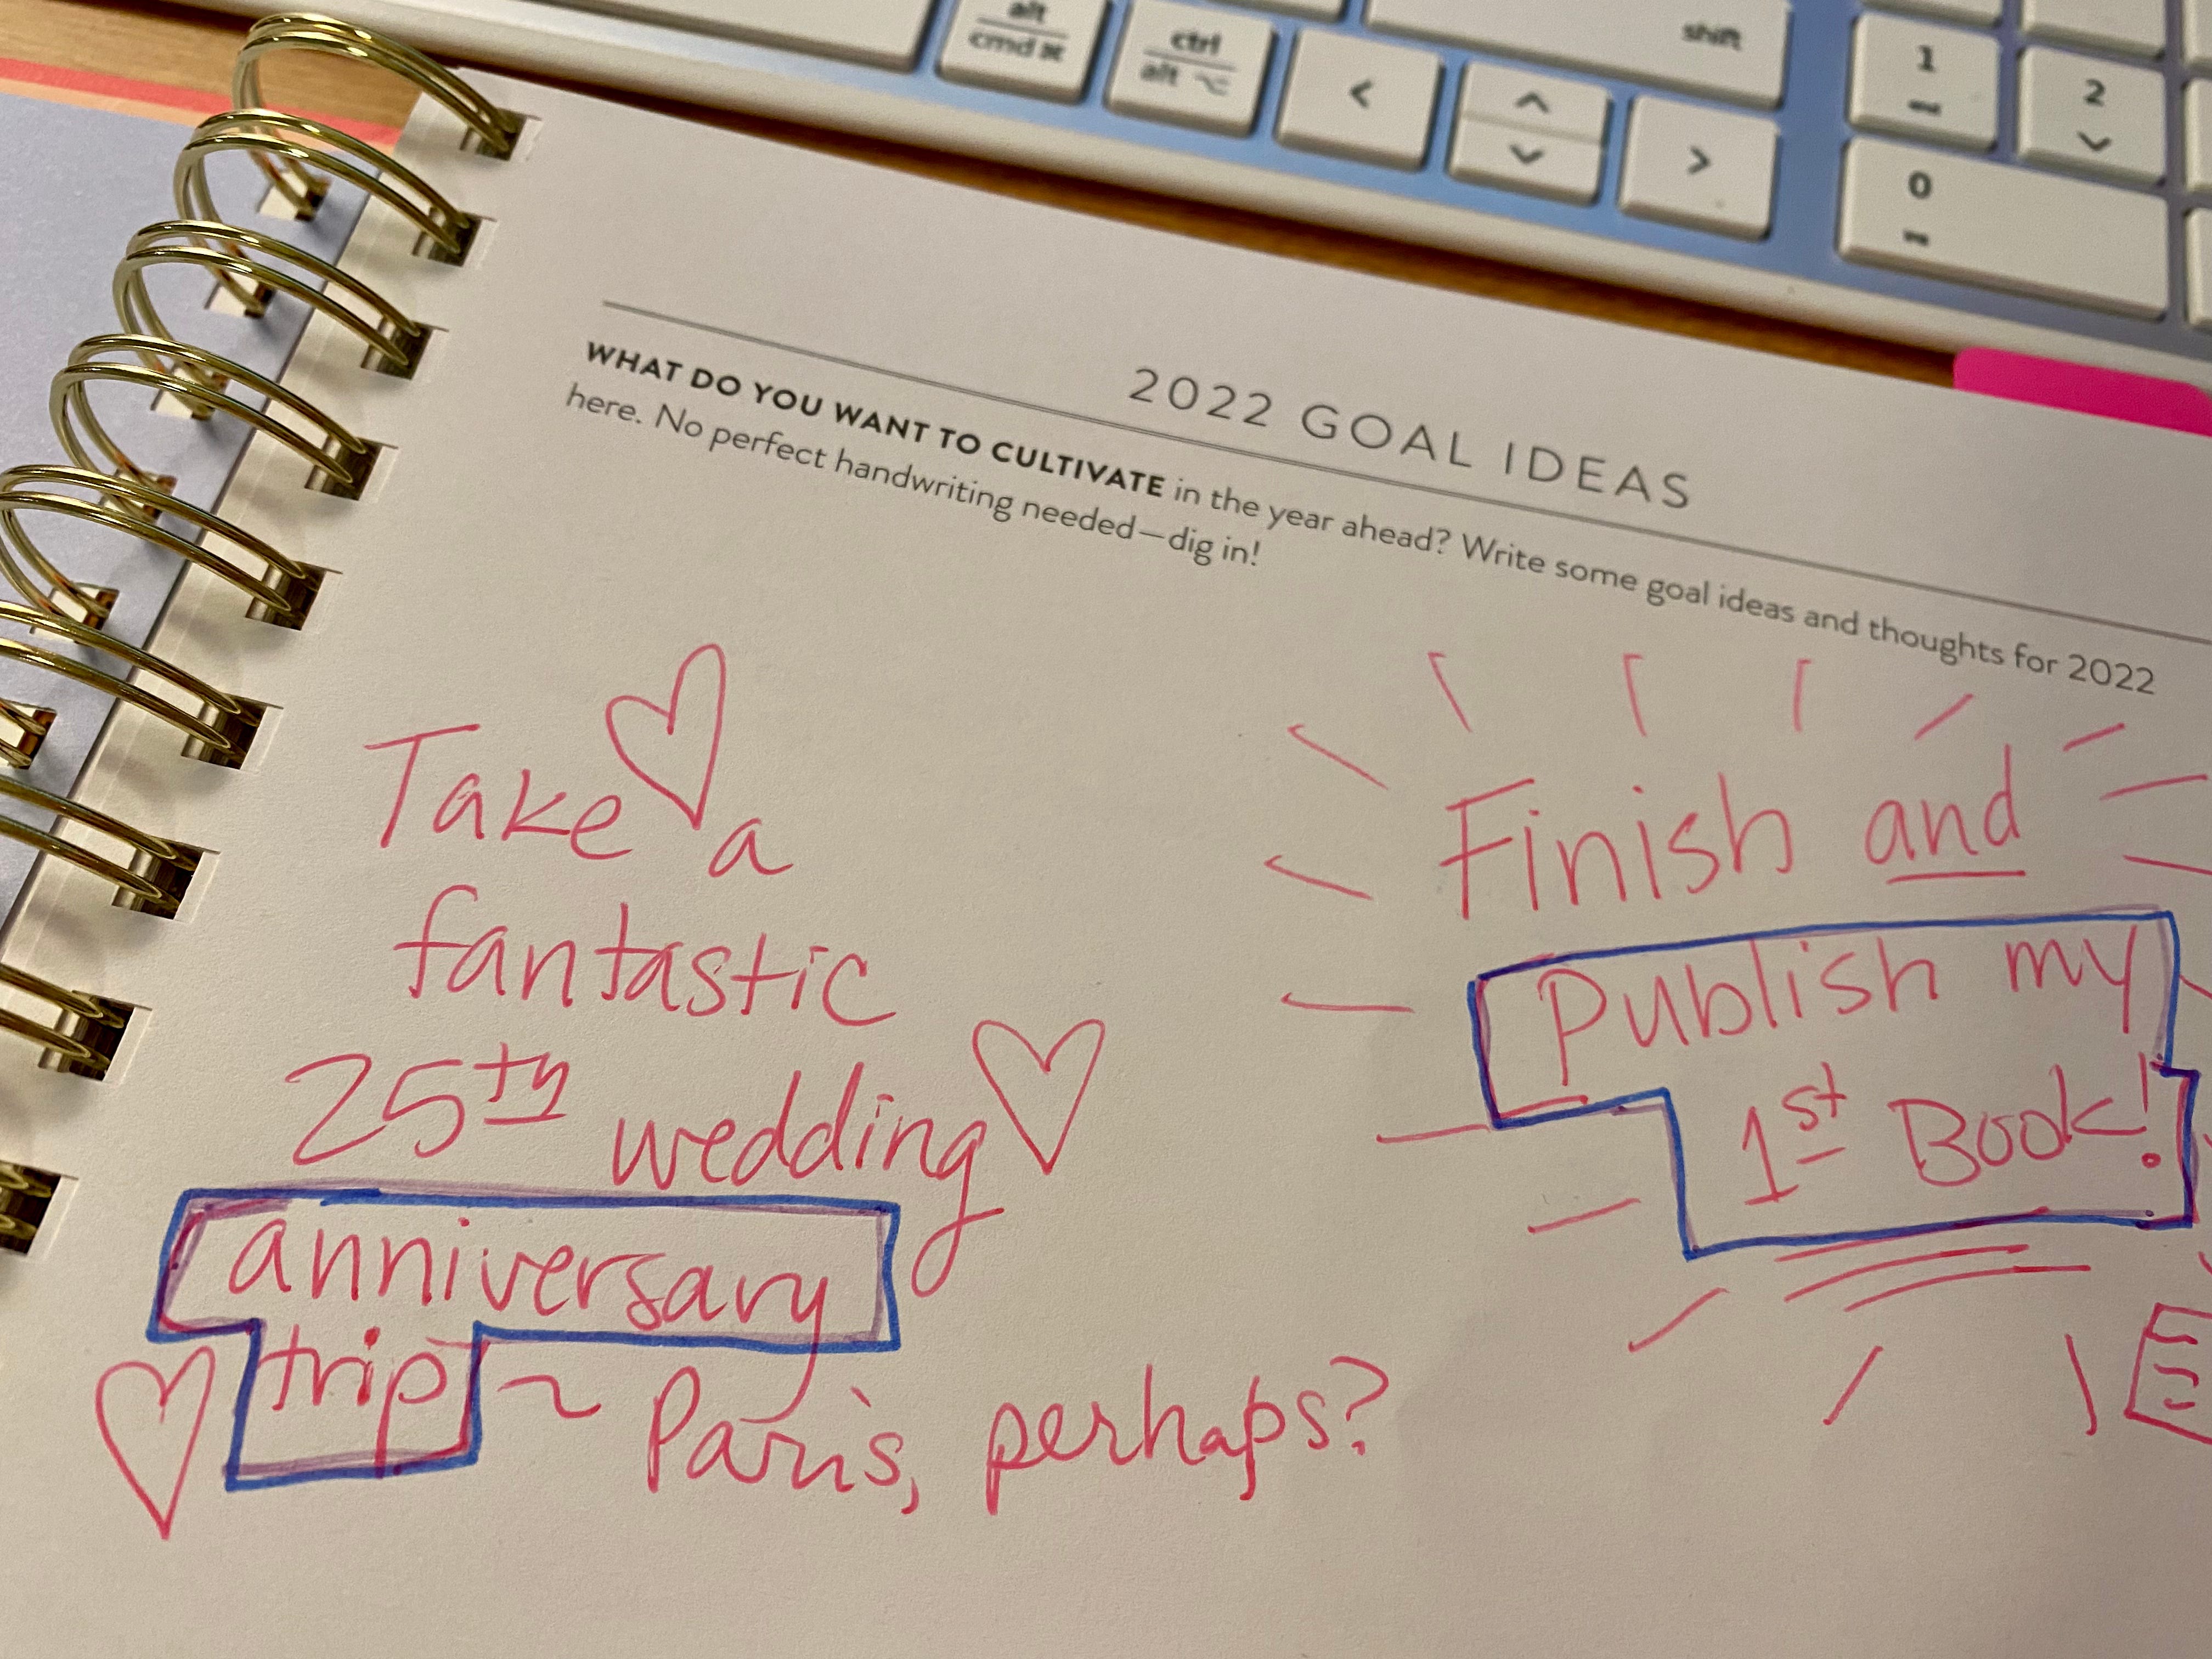 alt
cmd ⌘
ctrl
alt ⌥
<
^
v
>
shift
1
2
0
2022 GOAL IDEAS
WHAT DO YOU WANT TO CULTIVATE in the year ahead? Write some goal ideas and thoughts for 2022
here. No perfect handwriting needed—dig in!
Take a
fantastic
25th wedding
anniversary
trip ~ Paris, perhaps?
Finish and
Publish my
1st Book!